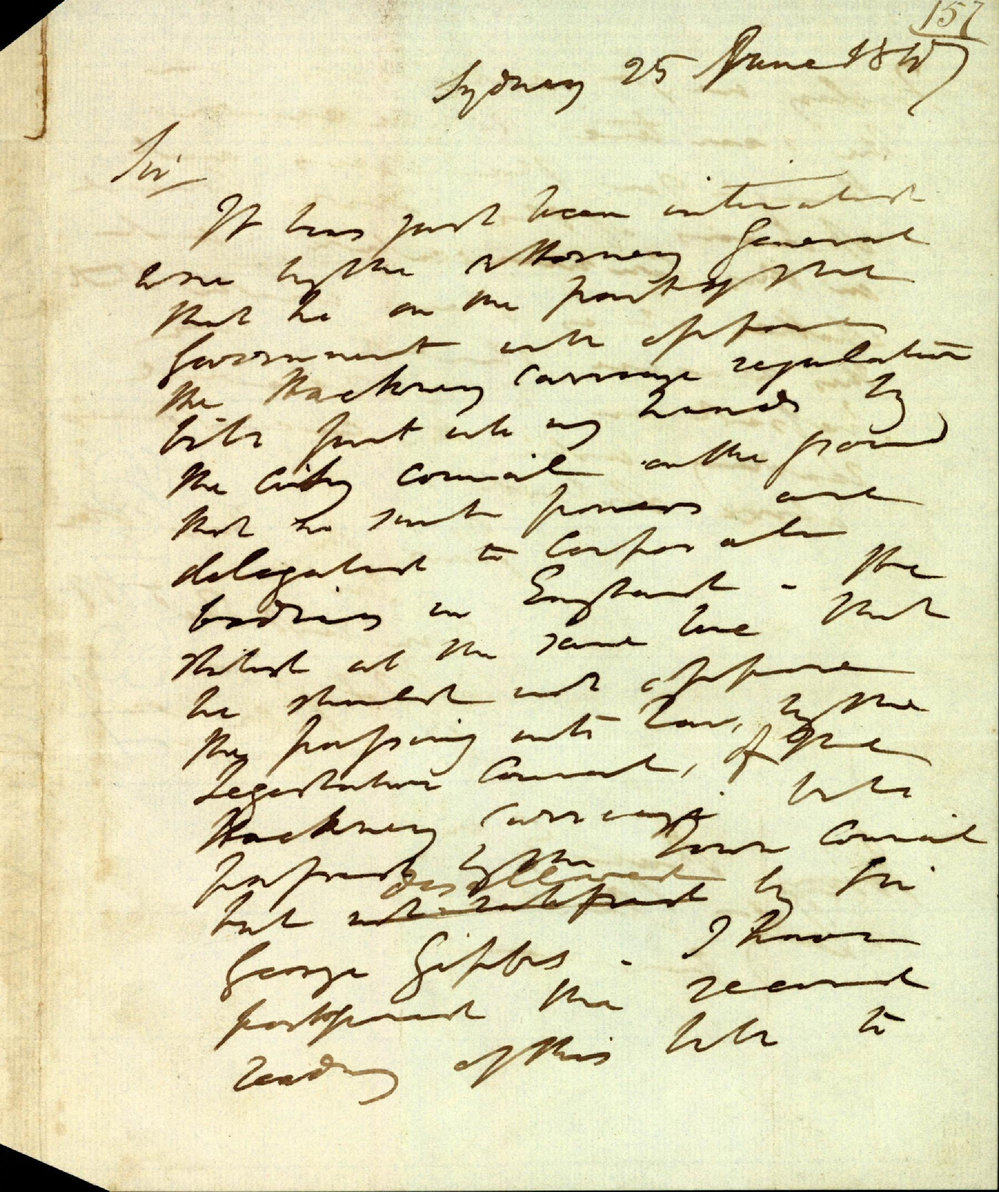 157
Sydney 25 June 1847
Sir
It has just been intimated
to me by the Attorney General
that he on the part of the
Government will oppose
the Hackney Carriage regulation
bill put into my hands by
the City Council on the ground
that no such powers are
delegated to Corporate
bodies in England - He
stated at the same time that
he should not oppose
the passing into law, by the
Legislative Council, of the
Hackney Carriage bill
passed by the Town Council
disallowed
but by Sir
George Gipps - I have
postponed the second
reading of this bill to